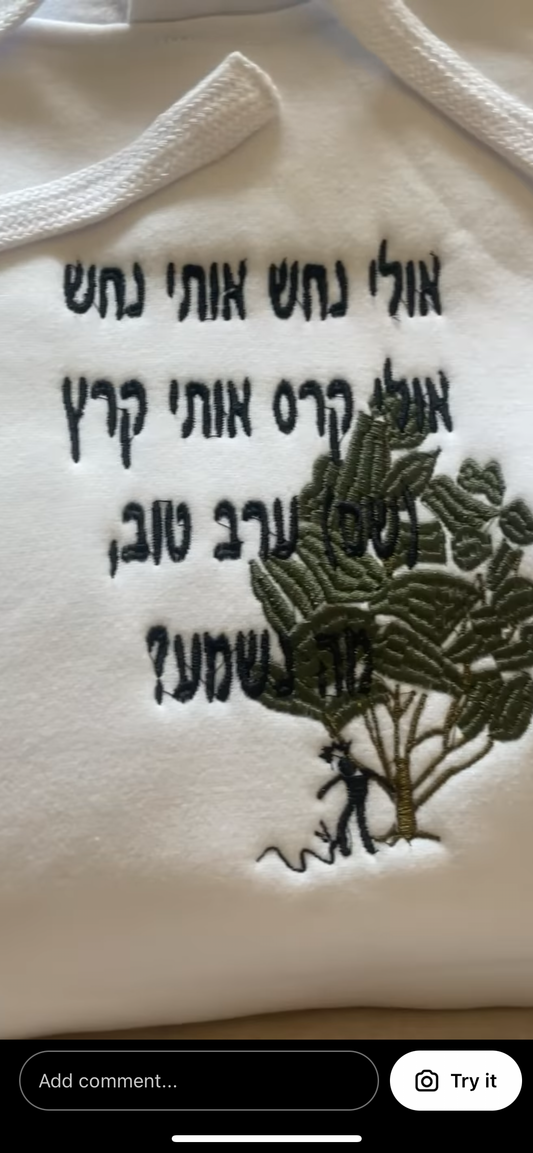 אולי נחש אותי נחש
אולי קרס אותי קרץ
(שם) ערב טוב,
מה נשמע?
Add comment...
Try it